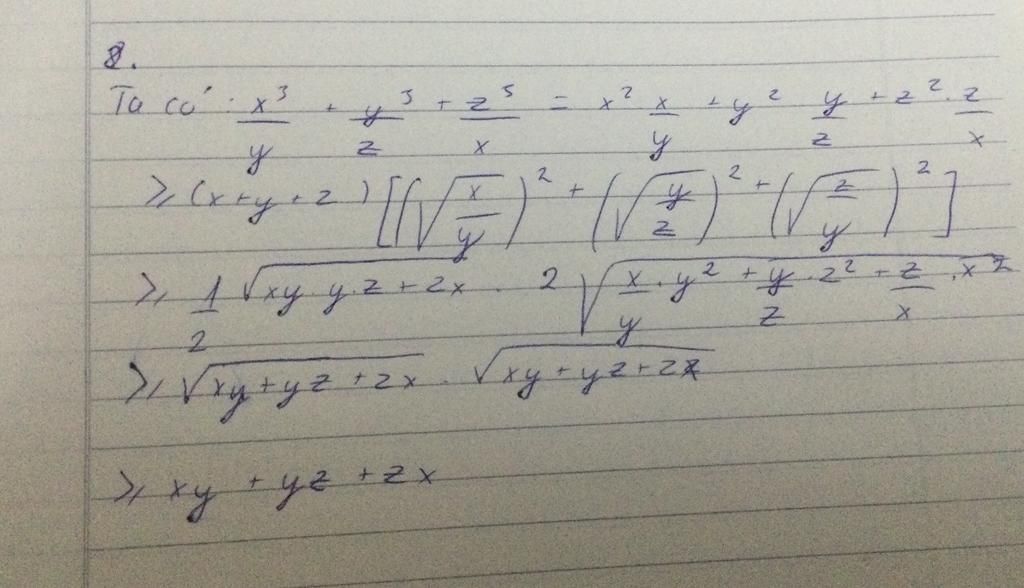 8.
Ta có: x³/y + y³/z + z³/x = x² x/y + y² y/z + z² . z/x
≥ (x+y+z) [(√(x/y))² + (√(y/z))² + (√(z/y))²]
≥ 1/2 √(xy.y.z+zx) . 2 √(x/y . y² + y/z . z² + z/x . x²)
≥ √(xy+yz+zx) . √(xy+yz+zx)
≥ xy + yz + zx